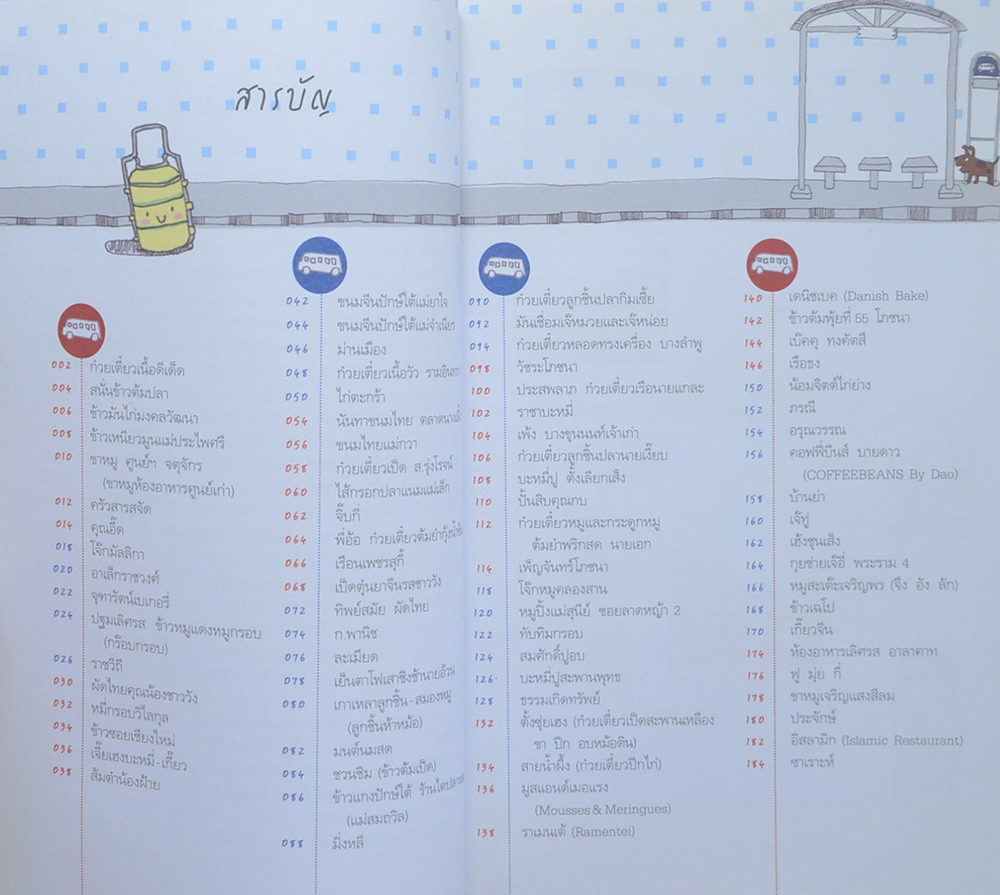 สารบัญ
002 ก๋วยเตี๋ยวเนื้อดีเด็ด
004 สนั่นข้าวต้มปลา
006 ข้าวมันไก่มงคลวัฒนา
008 ข้าวเหนียวมูนแม่ประไพศรี
010 ขาหมู ศูนย์ฯ จตุจักร
(ขาหมูห้องอาหารศูนย์เก่า)
012 ครัวสารสจัด
014 คุณอี๊ด
018 โจ๊กมัลลิกา
020 อาเล็กราชวงศ์
022 จุฑารัตน์เบเกอรี่
024 ปฐมเลิศรส ข้าวหมูแดงหมูกรอบ
(กร๊อบกรอบ)
026 ราชวิถี
030 ผัดไทยคุณน้องชาววัง
032 หมี่กรอบวิไลกุล
034 ข้าวซอยเชียงใหม่
036 เจี๊ยเฮงบะหมี่-เกี๊ยว
038 ส้มตำน้องฝ้าย
042 ขนมจีนปักษ์ใต้แม่ยาใจ
044 ขนมจีนปักษ์ใต้แม่จำเนียร
046 ม่านเมือง
048 ก๋วยเตี๋ยวเนื้อวัว
050 ไก่ตะกร้า
054 นันทาขนมไทย
056 ขนมไทยแม่กวา
058 ก๋วยเตี๋ยวเป็ด ส.รุ่งโรจน์
060 ไส้กรอกปลาแนมแม่เล็ก
062 จิ๊บกี่
064 พี่อ้อ ก๋วยเตี๋ยวต้มยำกุ้ง
066 เรือนเพชรสุกี้
068 เป็ดตุ๋นยาจีนรสชาววัง
072 ทิพย์สมัย ผัดไทย
074 ก.พานิช
076 ละเมียด
078 เย็นตาโฟเสาชิงช้านายอ้วน
080 เกาเหลาลูกชิ้น-สมองหมู
(ลูกชิ้นห้าหม้อ)
082 มนต์นมสด
084 ชวนชิม (ข้าวต้มเป็ด)
086 ข้าวแกงปักษ์ใต้
(แม่สมถวิล)
088 มิ่งหลี
090 ก๋วยเตี๋ยวลูกชิ้นปลากิมเซี้ย
092 มันเชื่อมเจ๊หมวยและเจ๊หน่อย
094 ก๋วยเตี๋ยวหลอดทรงเครื่อง บางลำพู
098 วัชระโภชนา
100 ประสพลาภ ก๋วยเตี๋ยวเรือนายแกละ
102 ราชาบะหมี่
104 เพ้ง บางขุนนนท์เจ้าเก่า
106 ก๋วยเตี๋ยวลูกชิ้นปลานายเงี๊ยบ
108 บะหมี่ปู ตั้งเลียกเส็ง
110 ปั้นสิบคุณกบ
112 ก๋วยเตี๋ยวหมูและกระดูกหมู
ต้มยำพริกสด นายเอก
114 เพ็ญจันทร์โภชนา
118 โจ๊กหมูคลองสาน
120 หมูปิ้งแม่สุนีย์ ซอยลาดหญ้า 2
122 ทับทิมกรอบ
124 สมศักดิ์ปูอบ
126 บะหมี่ปูสะพานพุทธ
128 ธรรมเกิดทรัพย์
132 ตั้งซุ่ยเฮง (ก๋วยเตี๋ยวเป็ดสะพานเหลือง
ขา ปีก อบหม้อดิน)
134 สายน้ำผึ้ง (ก๋วยเตี๋ยวปีกไก่)
136 มูสแอนด์เมอแรง
(Mousses & Meringues)
138 ราเมนเต้ (Ramentei)
140 เดนิชเบค (Danish Bake)
142 ข้าวต้มพุ้ยที่ 55 โภชนา
144 เบ๊คคู ทงคัตสึ
146 เรือธง
150 น้อมจิตต์ไก่ย่าง
152 ภรณี
154 อรุณวรรณ
156 คอฟฟี่บีนส์ บายดาว
(COFFEEBEANS By Dao)
158 บ้านย่า
160 เจ๊ทู่
162 เฮ้งชุนเส็ง
164 กุยช่ายเจ๊อี่ พระราม 4
166 หมูสะเต๊ะเจริญพร (จึง อัง ลัก)
168 ข้าวเฉโป
170 เกี๊ยวจีน
174 ห้องอาหารเลิศรส อาลาคาท
176 ฟู มุ่ย กี่
178 ขาหมูเจริญแสงสีลม
180 ประจักษ์
182 อิสลามิก (Islamic Restaurant)
184 ซาเราะห์